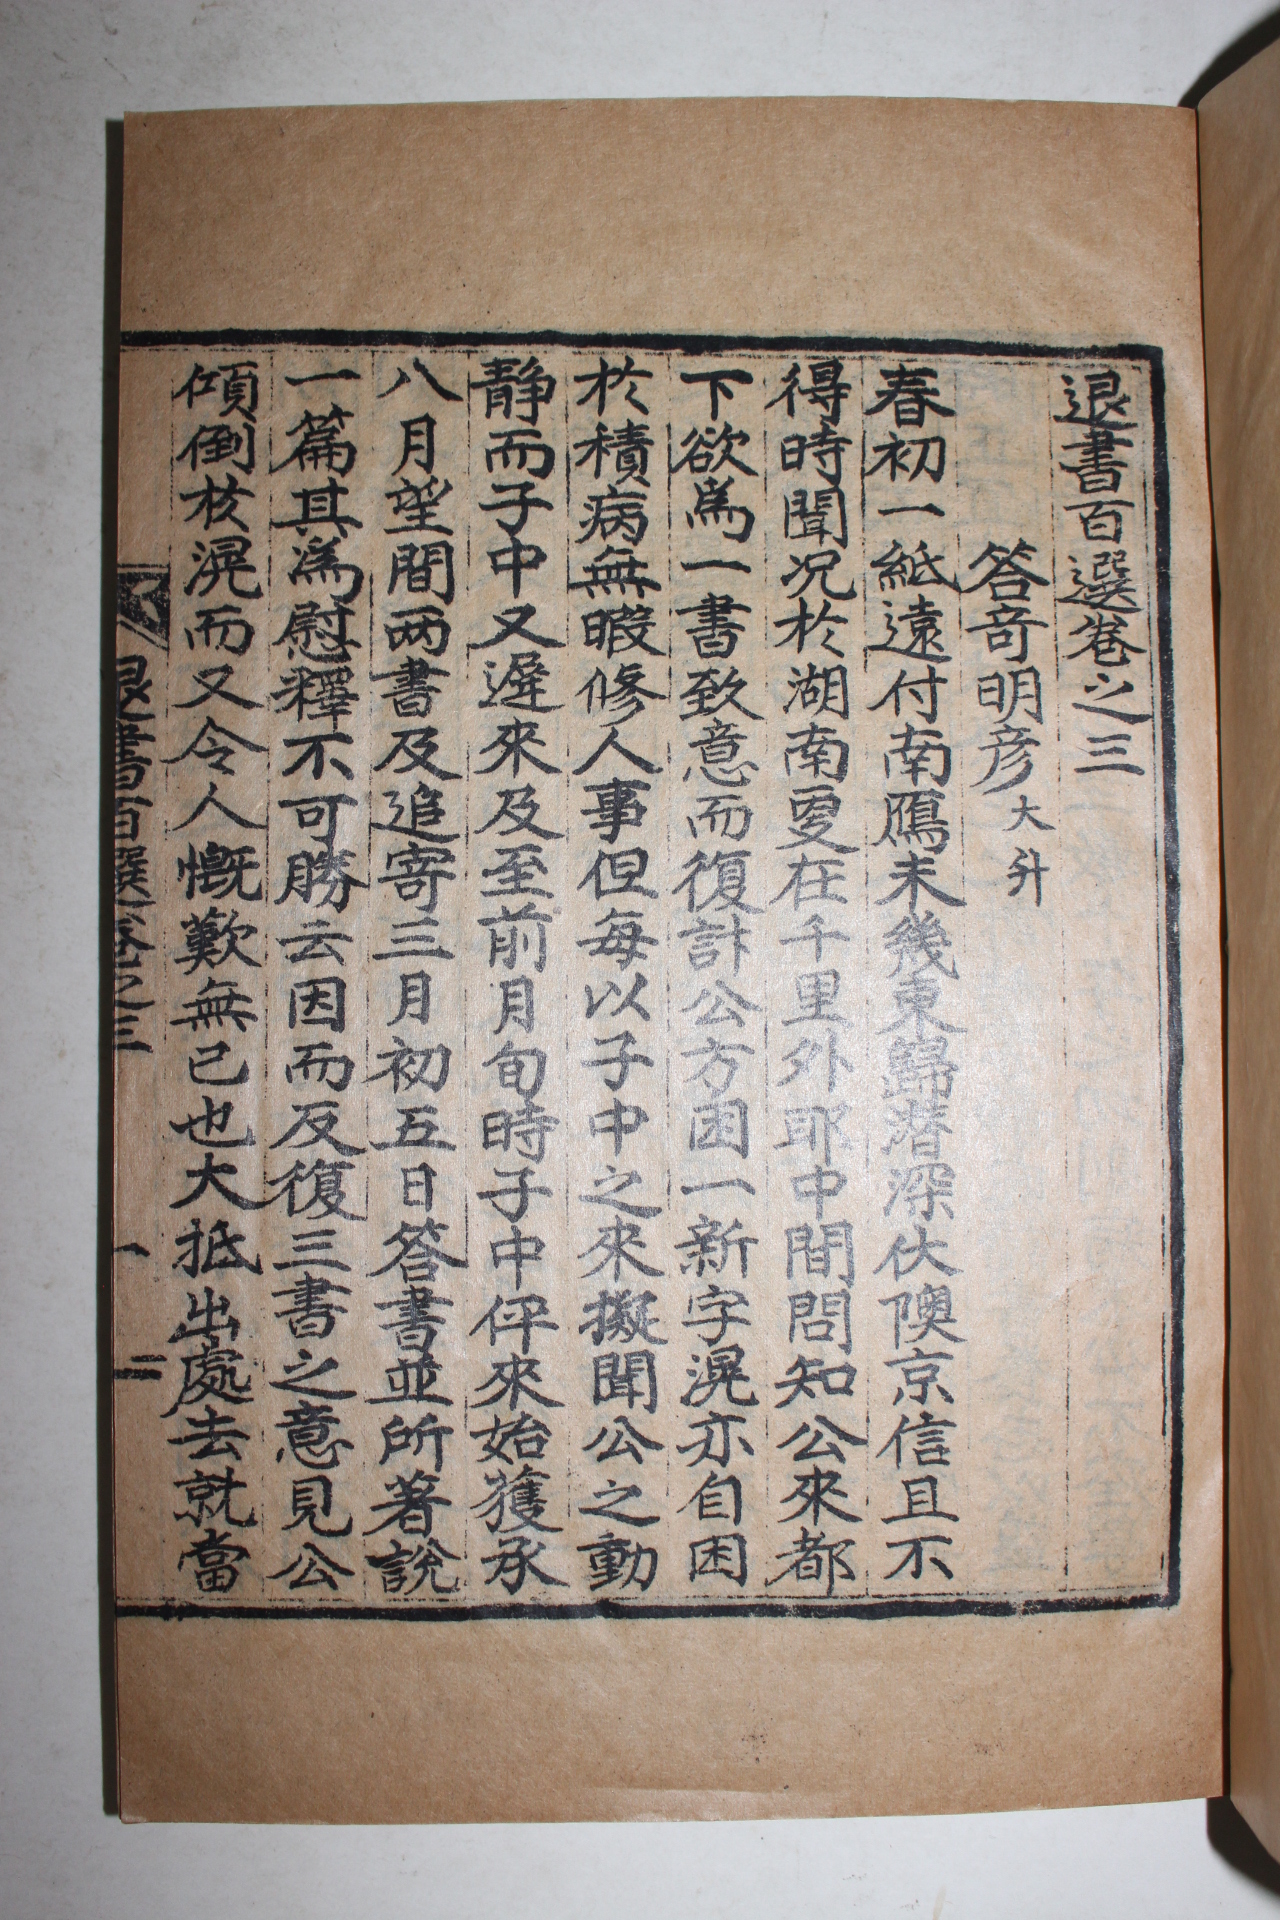 退書百選卷之三
答竒明彦大升
春初一紙遠付南鴈未幾東歸潛深伏隩京信且不
得時聞况於湖南夐在千里外耶中間問知公來都
下欲爲一書致意而復計公方困一新字滉亦自困
於積病無暇修人事但每以子中之來擬聞公之動
靜而子中又遲來及至前月旬時子中伻來始獲承
八月望間兩書及追寄三月初五日答書並所著說
一篇其爲慰釋不可勝云因而反復三書之意見公
傾倒於滉而又令人慨歎無已也大抵出處去就當
退書百選卷之三 一